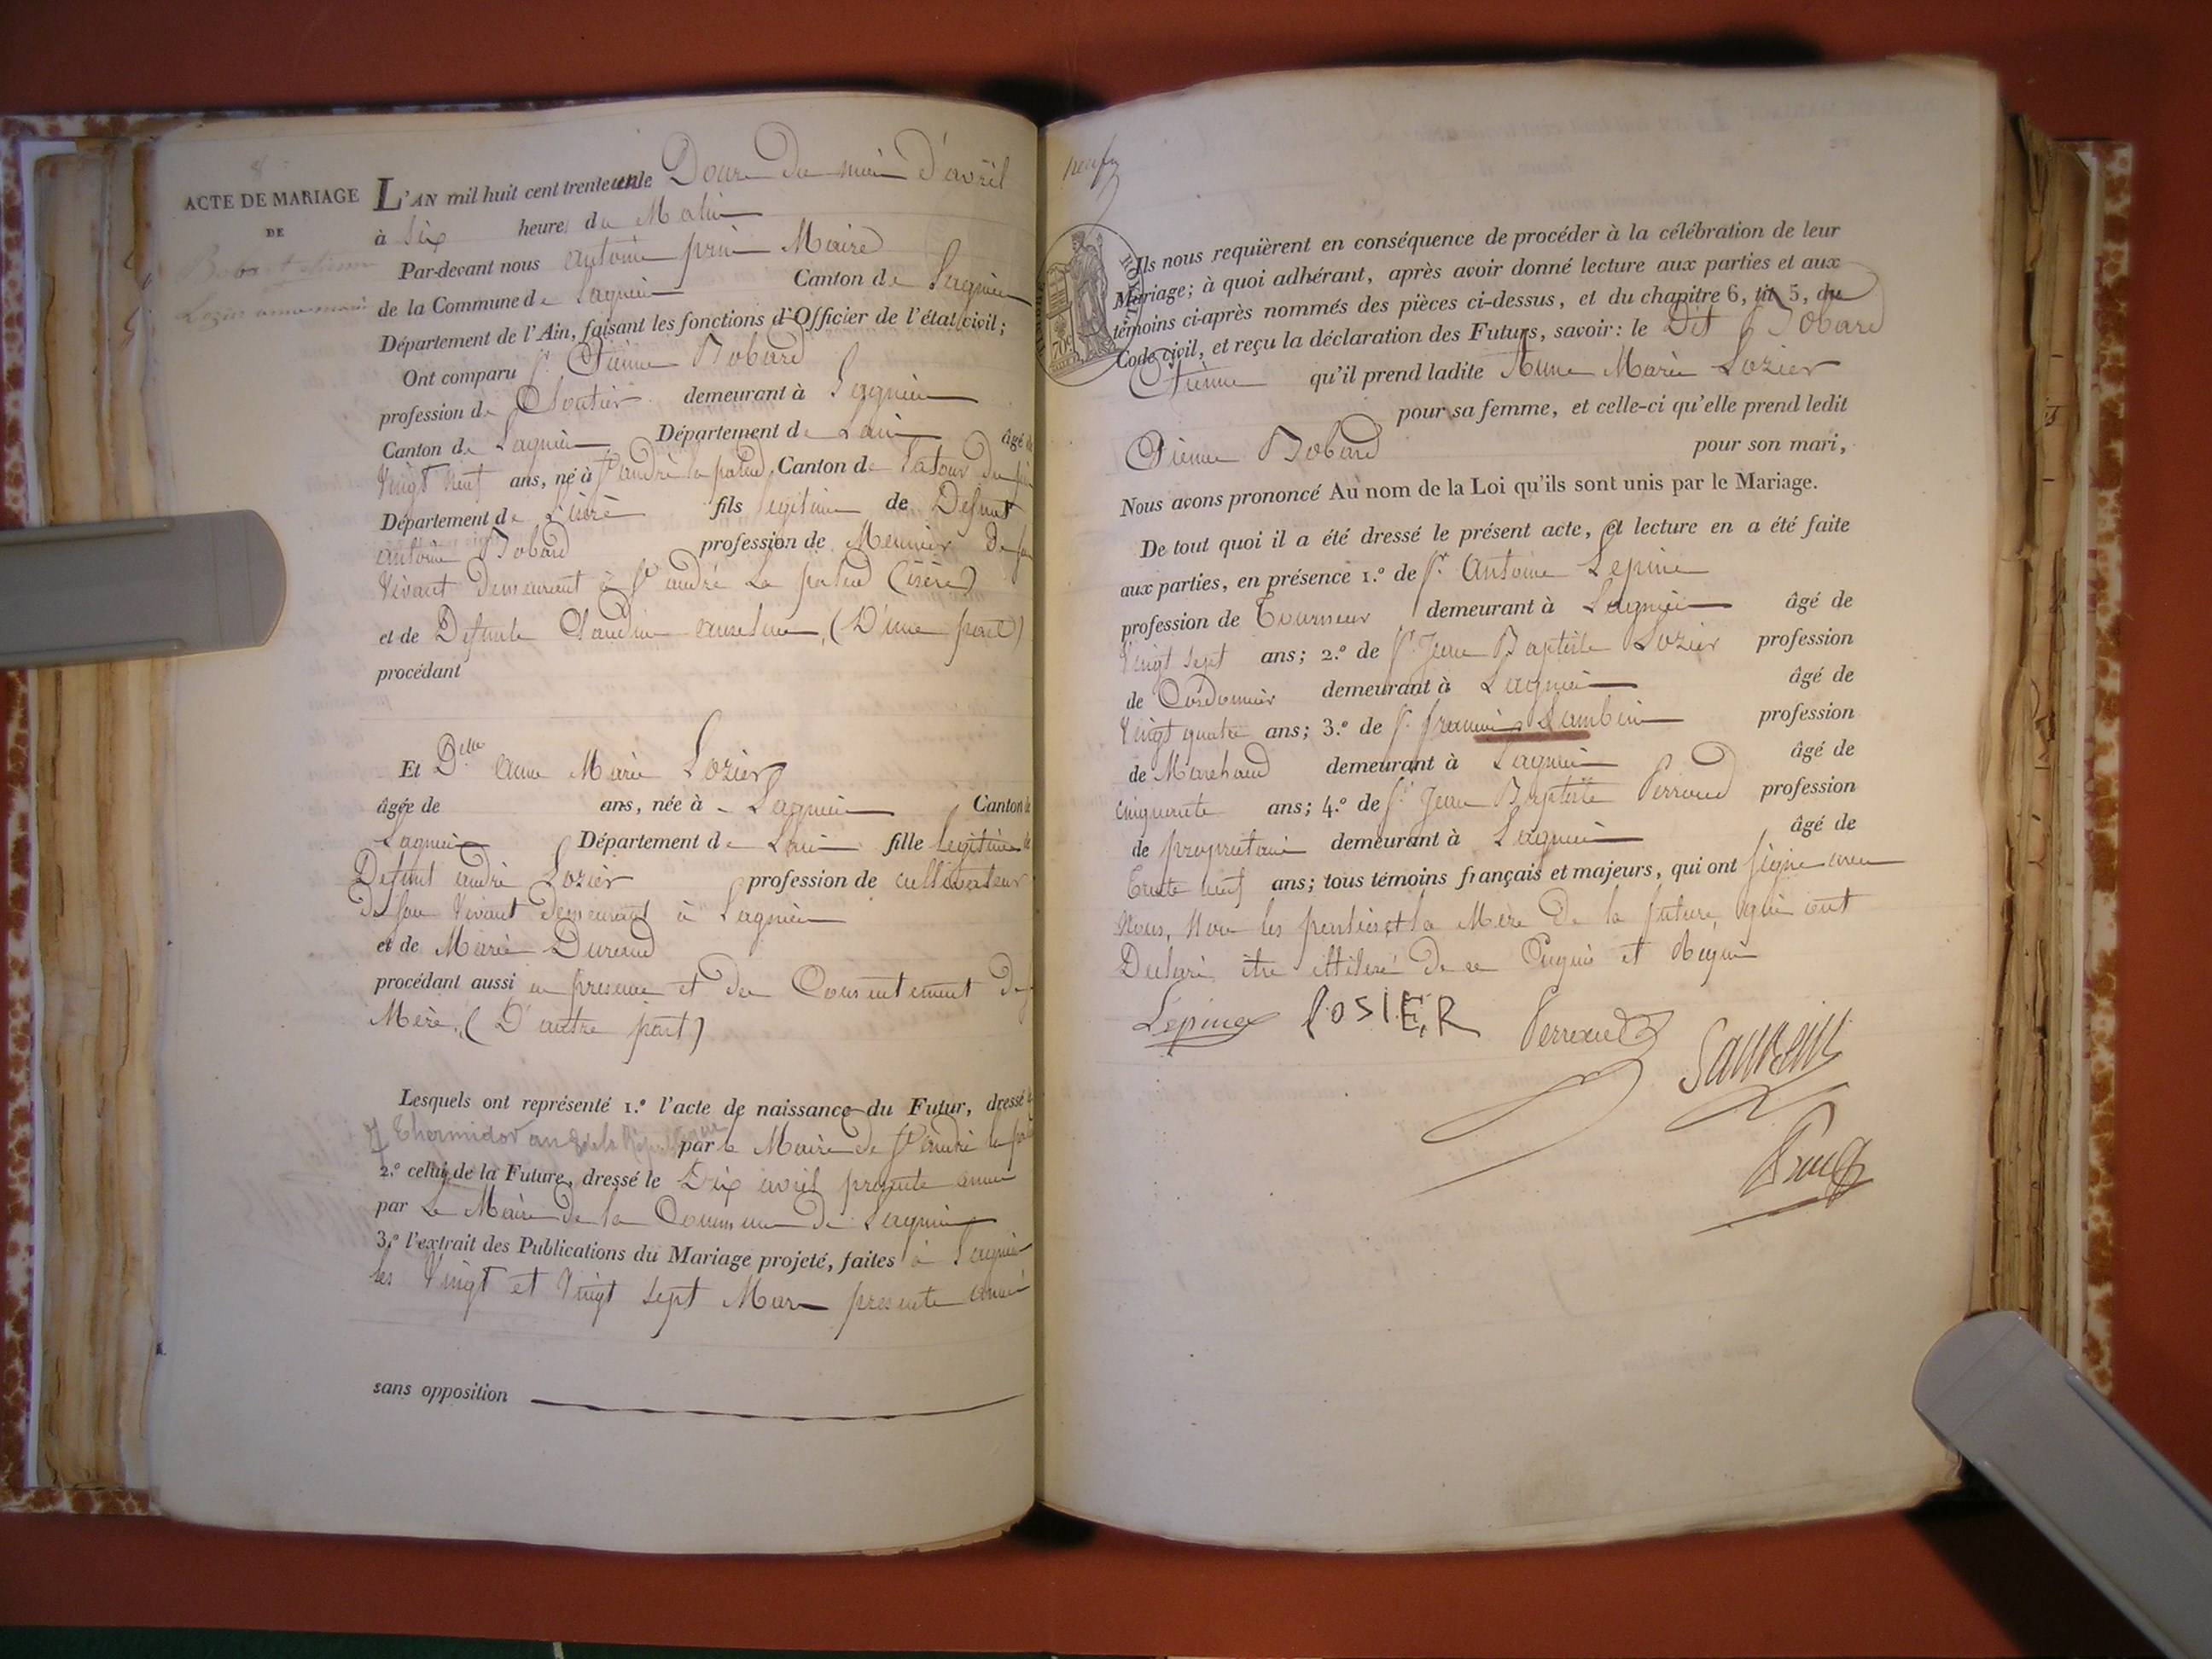 ACTE DE MARIAGE
DE
Bobart
Lozier anne marie
L'AN mil huit cent trente un le Douze du mois d'avril
à Six heures du Matin
Par-devant nous antoine Maire
de la Commune de Lagnieu Canton de Lagnieu
Département de l'Ain, faisant les fonctions d'Officier de l'état civil;
Ont comparu Sr. Etienne Bobard
profession de demeurant à Lagnieu
Canton de Lagnieu Département de Lain âgé de
Vingt neuf ans, né à St andré la palud Canton de Latour du pin
Département de L'isère fils legitime de Defunt
antoine Bobard profession de Meunier De son
Vivant Demeurant à St andré La palud (isère)
et de Defunte Claudine anselme, (D'une part)
procédant
Et Delle anne Marie Lozier
âgée de ans, née à Lagnieu Canton de
Lagnieu Département de Lain fille legitime de
Defunt andré Lozier profession de cultivateur
de son Vivant Demeurant à Lagnieu
et de Marie Durand
procédant aussi en presence et du Consentement de sa
Mère, (D'autre part)
Lesquels ont représenté 1.º l'acte de naissance du Futur, dressé le
7 Thermidor an de la République par le Maire de St andré la palud
2.º celui de la Future, dressé le Dix avril presente année
par Le Maire de la Commune de Lagnieu
3.º l'extrait des Publications du Mariage projeté, faites à Lagnieu
les Vingt et Vingt sept Mars presente année
sans opposition
neuf
70c
Ils nous requièrent en conséquence de procéder à la célébration de leur
Mariage; à quoi adhérant, après avoir donné lecture aux parties et aux
témoins ci-après nommés des pièces ci-dessus, et du chapitre 6, tit 5, du
Code civil, et reçu la déclaration des Futurs, savoir: le Dit Sr Bobard
Etienne qu'il prend ladite Anne Marie Lozier
pour sa femme, et celle-ci qu'elle prend ledit
Etienne Bobard pour son mari,
Nous avons prononcé Au nom de la Loi qu'ils sont unis par le Mariage.
De tout quoi il a été dressé le présent acte, et lecture en a été faite
aux parties, en présence 1.º de Sr. Antoine Lepine
profession de Tourneur demeurant à Lagnieu âgé de
Vingt sept ans; 2.º de Sr. Jean Baptiste Lozier profession
de Cordonnier demeurant à Lagnieu âgé de
Vingt quatre ans; 3.º de Sr. françois Sambin profession
de Marchand demeurant à Lagnieu âgé de
cinquante ans; 4.º de Sr. Jean Baptiste Perroud profession
de proprietaire demeurant à Lagnieu âgé de
Trente neuf ans; tous témoins français et majeurs, qui ont signé avec
Nous, Non les parties et la Mère De la future, qui ont
Declaré être illiteré de ce Enquis et Requis
Lépine LOSIER Perroud
SAMBEIN